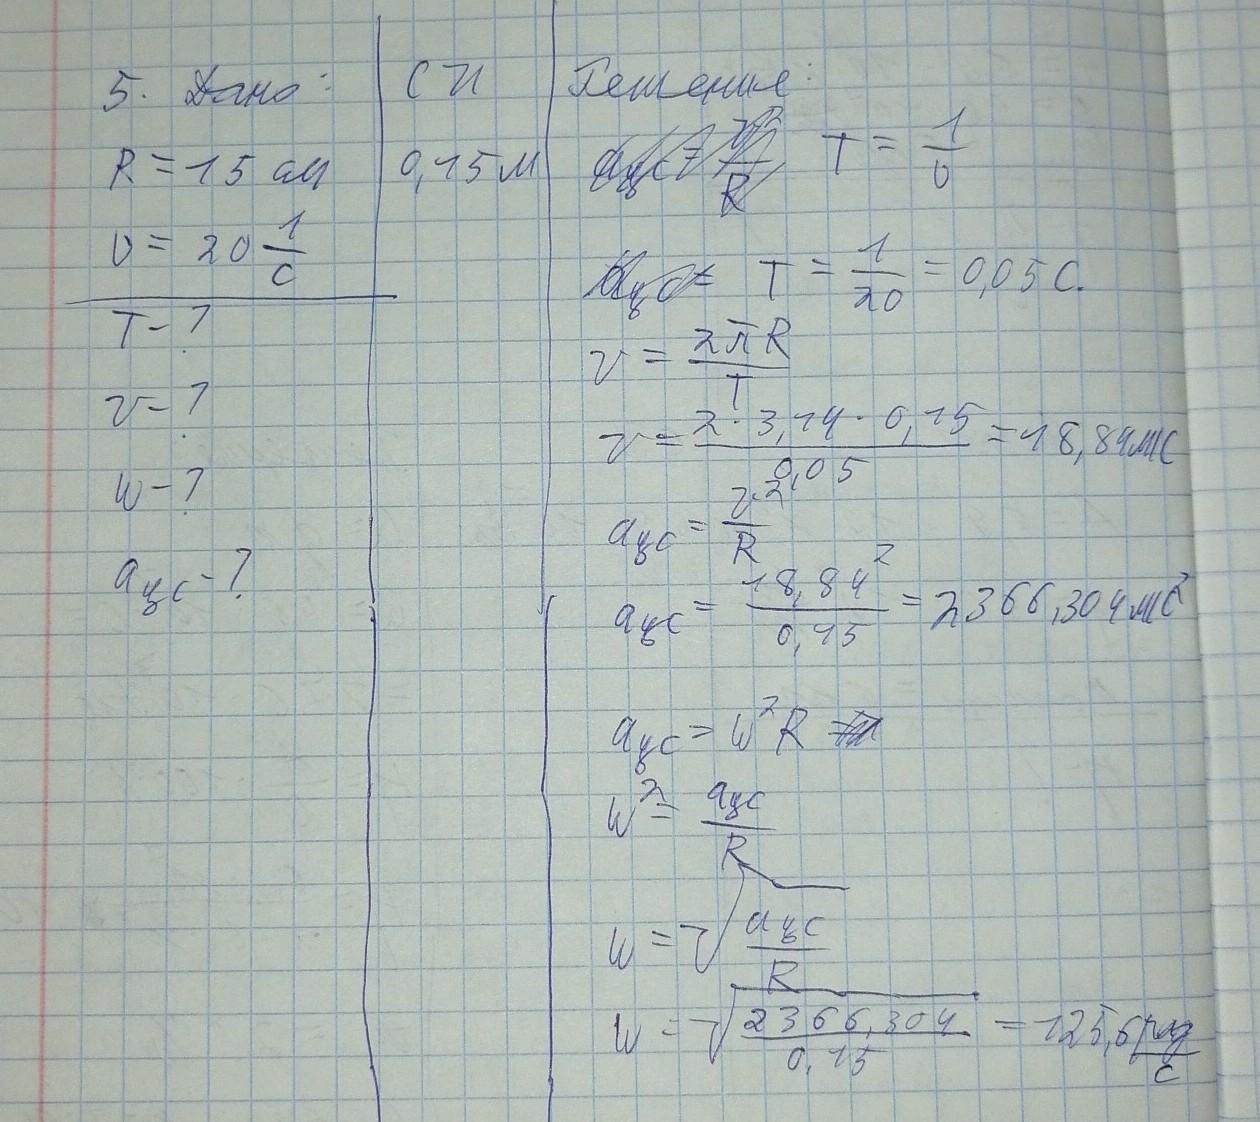 5. Дано:
R = 15 см
υ = 20 1/с
T - ?
v - ?
w - ?
aцс - ?
СИ
0,15 м
Решение:
T = 1/υ
T = 1/20 = 0,05 с.
v = 2πR/T
v = 2·3,14·0,15/0,05 = 18,84 м/с
aцс = v²/R
aцс = 18,84²/0,15 = 2366,304 м/с²
aцс = w²R
w² = aцс/R
w = √(aцс/R)
w = √(2366,304/0,15) = 125,6 рад/с